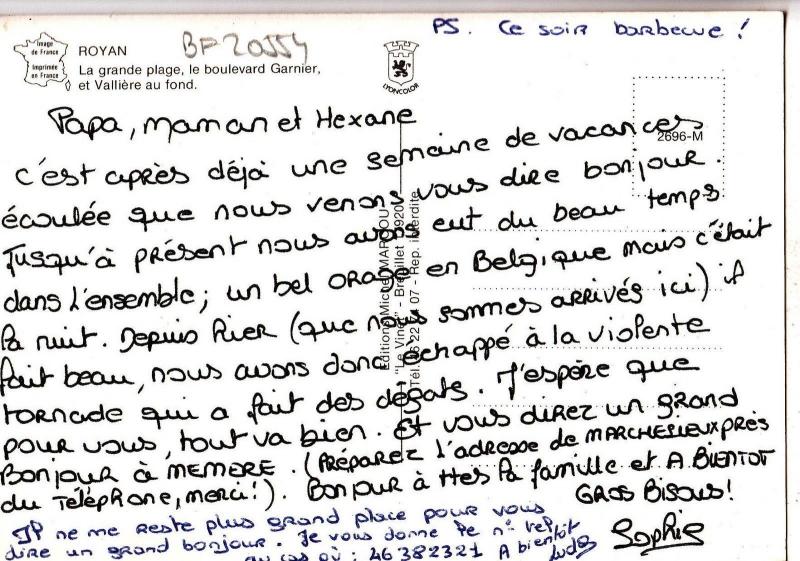 PS. Ce soir barbecue !
Image de France
Imprimée en France
ROYAN
BF20554
La grande plage, le boulevard Garnier,
et Vallière au fond.
LYONCOLOR
2696-M
Papa, maman et Hexane
c'est après déjà une semaine de vacances
écoulée que nous venons vous dire bonjour.
Jusqu'à présent nous avons eut du beau temps
dans l'ensemble; un bel orage en Belgique mais c'était
la nuit. Depuis hier (que nous sommes arrivés ici) il
fait beau, nous avons donc échappé à la violente
tornade qui a fait des dégats. J'espère que
pour vous, tout va bien. Et vous direz un grand
Bonjour à MEMERE. (PRÉPAREZ l'adresse de MARCHESIEUX PRÈS
du TÉLÉPHONE, merci!). Bonjour à ttes la famille et A BIENTOT
GROS BISOUS!
Sophie
Il ne me reste plus grand place pour vous
dire un grand bonjour. Je vous donne le n° tel
au cas où : 46382321 A bientôt
Ludo
Editions Michel
"Le Vinet" - 
07 - Rep. interdite